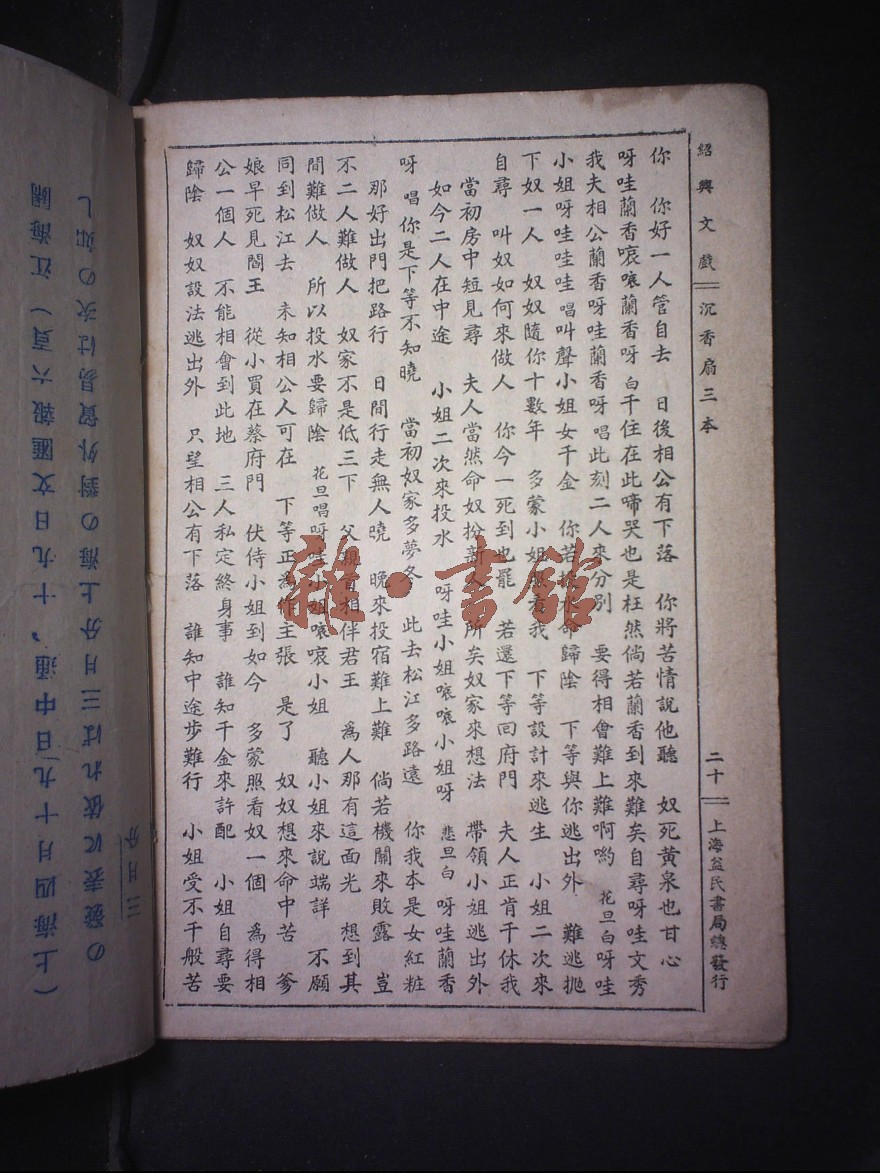 紹興文戲 沉香扇三本 二十 上海益民書局總發行
你 你好一人管自去 日後相公有下落 你將苦情說他聽 奴死黃泉也甘心
呀哇蘭香哀哀蘭香呀 白 千住在此啼哭也是枉然倘若蘭香到來難矣自尋呀哇文秀
我夫相公蘭香呀哇蘭香呀 唱 此刻二人來分別 要得相會難上難啊喲 花旦白 呀哇
小姐呀哇哇哇 唱 叫聲小姐女千金 你若投水命歸陰 下等與你逃出外 難逃拋
下奴一人 奴奴隨你十數年 多蒙小姐照看我 下等設計來逃生 小姐二次來
自尋 叫奴如何來做人 你今一死到也罷 若還下等回府門 夫人正肯干休我
當初房中短見尋 夫人當然命奴扮新人 所矣奴家來想法 帶領小姐逃出外
如今二人在中途 小姐二次來投水 呀哇小姐哀哀小姐呀 悲旦白 呀哇蘭香
呀 唱 你是下等不知曉 當初奴家多夢冬 此去松江多路遠 你我本是女紅粧
那好出門把路行 日間行走無人曉 晚來投宿難上難 倘若機關來敗露 豈
不二人難做人 奴家不是低三下 父親首相伴君王 為人那有這面光 想到其
間難做人 所以投水要歸陰 花旦唱 呀哇小姐哀哀小姐 聽小姐來說端詳 不願
同到松江去 未知相公人可在 下等正為作主張 是了 奴奴想來命中苦 爹
娘早死見閻王 從小買在蔡府門 伏侍小姐到如今 多蒙照看奴一個 為得相
公一個人 不能相會到此地 三人私定終身事 誰知千金來許配 小姐自尋要
歸陰 奴奴設法逃出外 只望相公有下落 誰知中途步難行 小姐受不千般苦
雜·書館
三月分
の發表に依れば三月分上海の對外貿易は次の如し
(上海四月十九日中通、十九日文匯報六頁)江海關